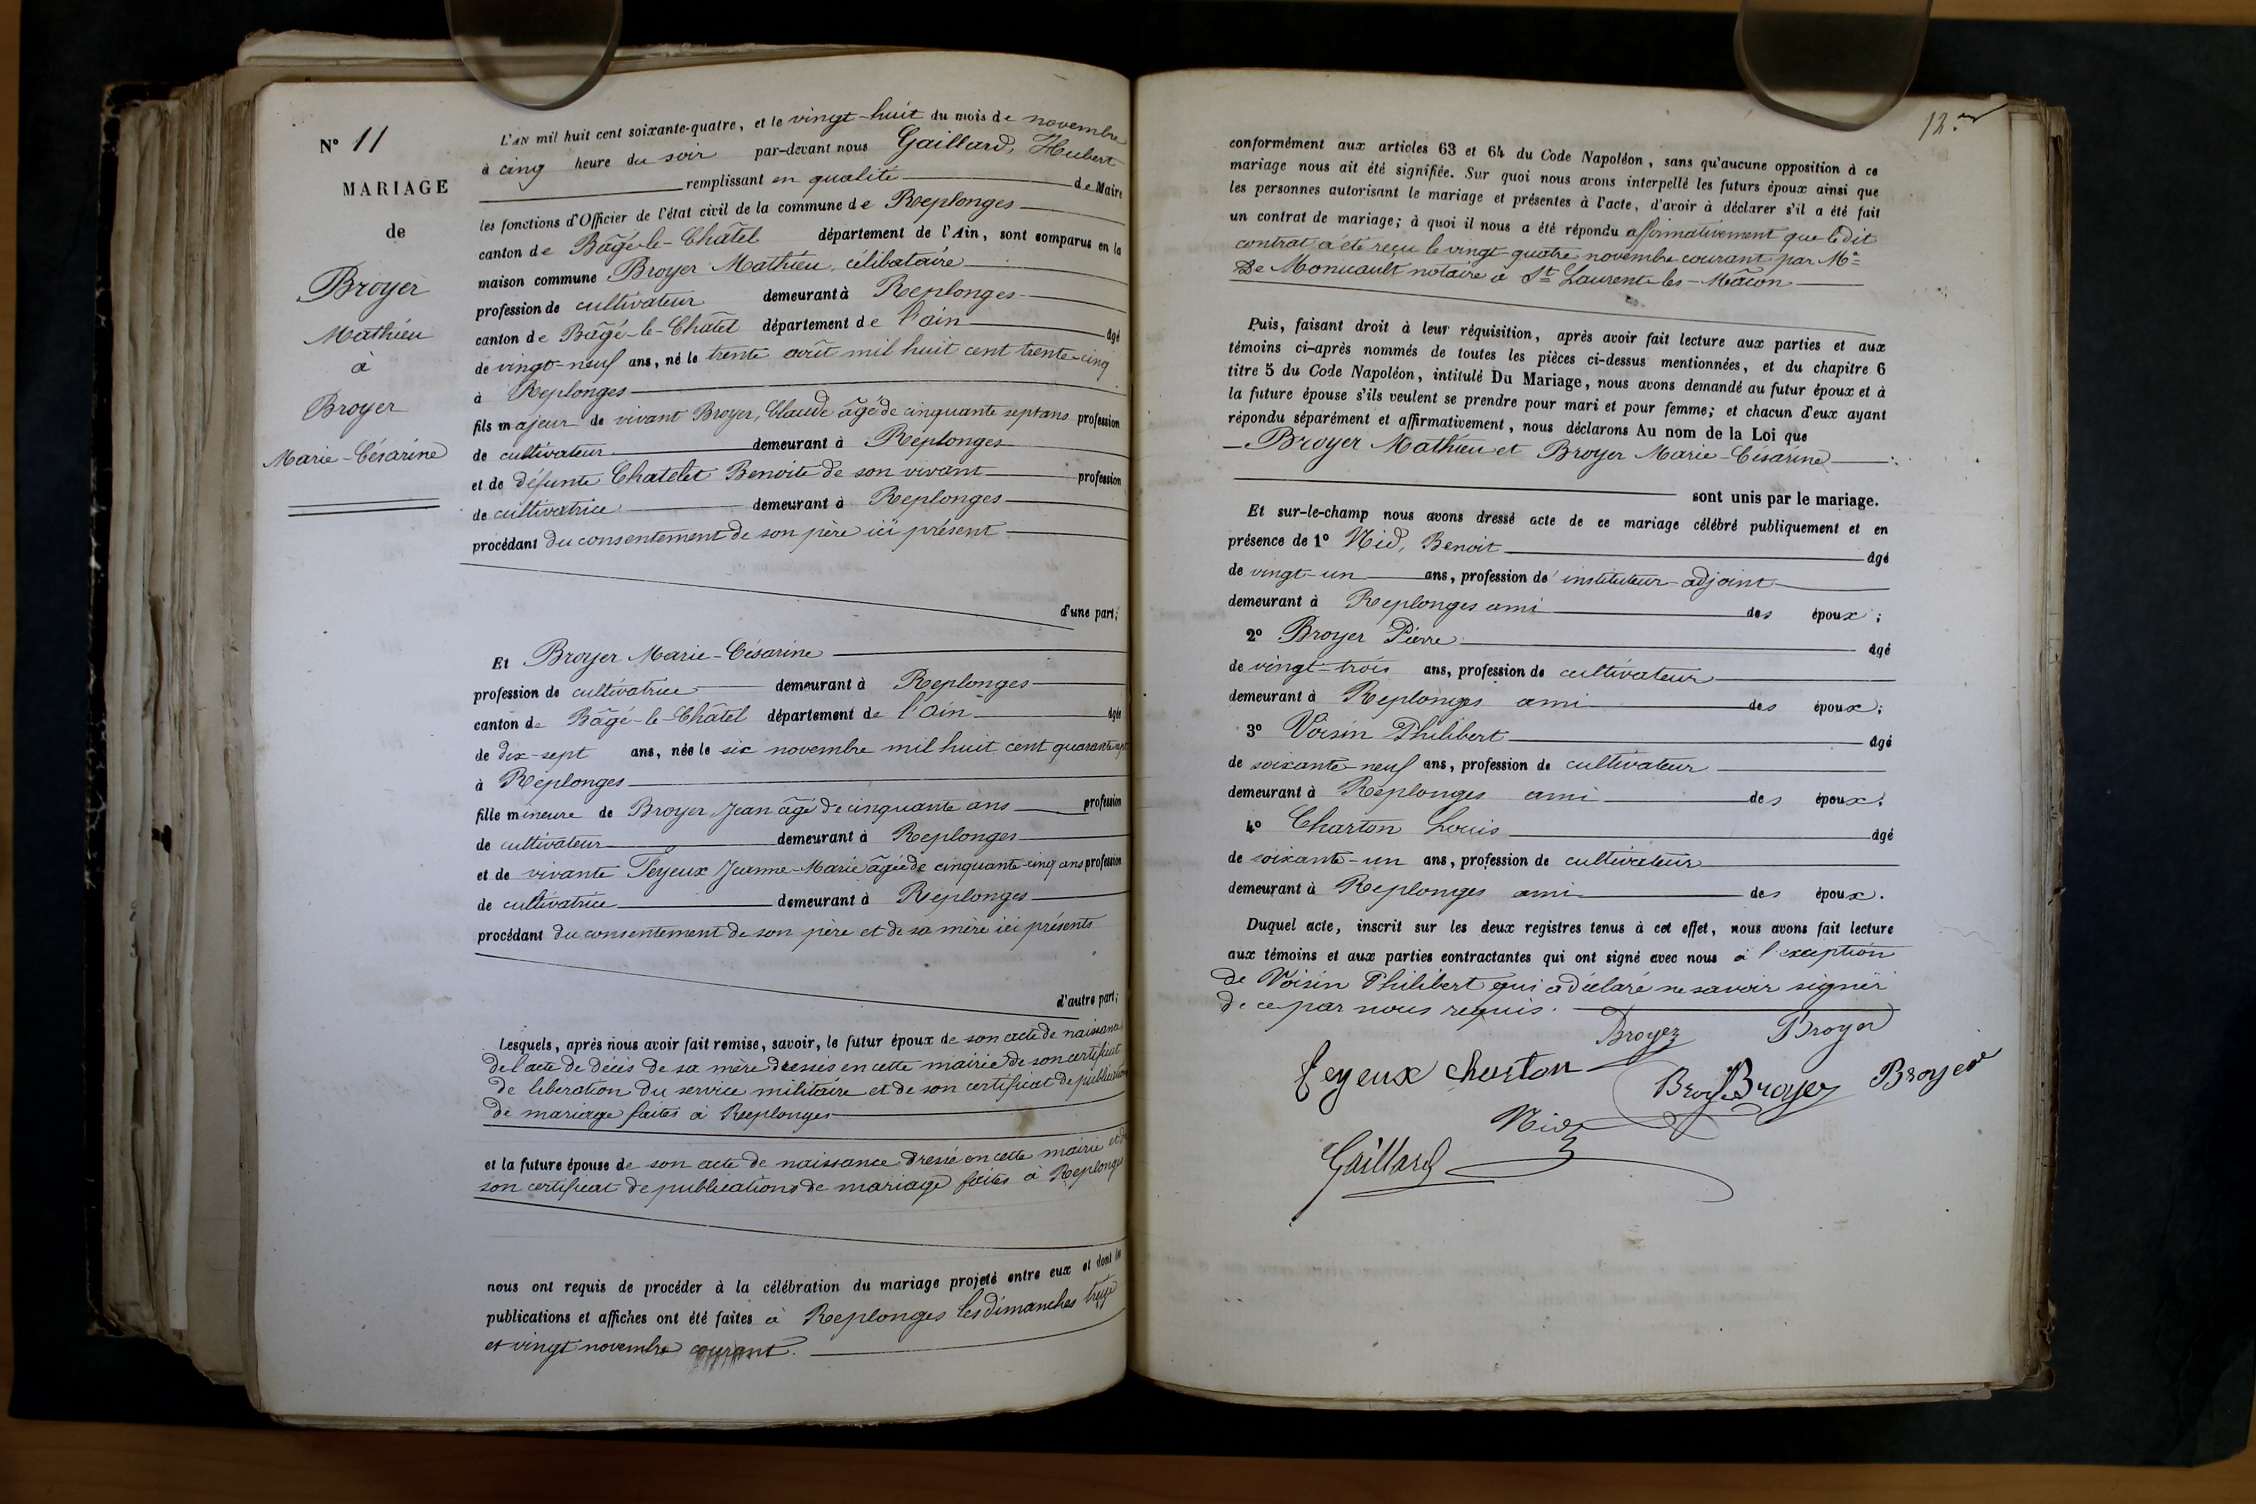 N° 11
MARIAGE
de
Broyer
Mathieu
à
Broyer
Marie-Césarine
L'AN mil huit cent soixante-quatre, et le vingt-huit du mois de novembre
à cinq heure du soir par-devant nous Gaillard, Hubert
remplissant en qualité de Maire
les fonctions d'Officier de l'état civil de la commune de Replonges
canton de Bâgé-le-Châtel département de l'Ain, sont comparus en la
maison commune Broyer Mathieu, célibataire
profession de cultivateur demeurant à Replonges
canton de Bâgé-le-Châtel département de l'ain âgé
de vingt-neuf ans, né le trente août mil huit cent trente-cinq
à Replonges
fils majeur de vivant Broyer, Claude âgé de cinquante sept ans profession
de cultivateur demeurant à Replonges
et de défunte Chatelet Benoite de son vivant profession
de cultivatrice demeurant à Replonges
procédant du consentement de son père ici présent
d'une part;
Et Broyer Marie-Césarine
profession de cultivatrice demeurant à Replonges
canton de Bâgé-le-Châtel département de l'Ain âgée
de dix-sept ans, née le six novembre mil huit cent quarante sept
à Replonges
fille mineure de Broyer Jean âgé de cinquante ans profession
de cultivateur demeurant à Replonges
et de vivante Feyeux Jeanne-Marie âgée de cinquante-cinq ans profession
de cultivatrice demeurant à Replonges
procédant du consentement de son père et de sa mère ici présents
d'autre part;
Lesquels, après nous avoir fait remise, savoir, le futur époux de son acte de naissance
de l'acte de décès de sa mère dressés en cette mairie de son certificat
de libération du service militaire et de son certificat de publication
de mariage faites à Replonges
et la future épouse de son acte de naissance dressé en cette mairie et de
son certificat de publications de mariage faites à Replonges
nous ont requis de procéder à la célébration du mariage projeté entre eux et dont les
publications et affiches ont été faites à Replonges les dimanches treize
et vingt novembre courant.
12.
conformément aux articles 63 et 64 du Code Napoléon, sans qu'aucune opposition à ce
mariage nous ait été signifiée. Sur quoi nous avons interpellé les futurs époux ainsi que
les personnes autorisant le mariage et présentes à l'acte, d'avoir à déclarer s'il a été fait
un contrat de mariage; à quoi il nous a été répondu affirmativement que le dit
contrat a été reçu le vingt quatre novembre courant par Me
De Monuault notaire à St Laurent-les-Mâcon
Puis, faisant droit à leur réquisition, après avoir fait lecture aux parties et aux
témoins ci-après nommés de toutes les pièces ci-dessus mentionnées, et du chapitre 6
titre 5 du Code Napoléon, intitulé Du Mariage, nous avons demandé au futur époux et à
la future épouse s'ils veulent se prendre pour mari et pour femme; et chacun d'eux ayant
répondu séparément et affirmativement, nous déclarons Au nom de la Loi que
Broyer Mathieu et Broyer Marie-Césarine
sont unis par le mariage.
Et sur-le-champ nous avons dressé acte de ce mariage célébré publiquement et en
présence de 1° Nid, Benoit âgé
de vingt-un ans, profession de instituteur-adjoint
demeurant à Replonges ami des époux;
2° Broyer Pierre âgé
de vingt-trois ans, profession de cultivateur
demeurant à Replonges ami des époux;
3° Voisin Philibert âgé
de soixante-neuf ans, profession de cultivateur
demeurant à Replonges ami des époux.
4° Charton Louis âgé
de soixante-un ans, profession de cultivateur
demeurant à Replonges ami des époux.
Duquel acte, inscrit sur les deux registres tenus à cet effet, nous avons fait lecture
aux témoins et aux parties contractantes qui ont signé avec nous à l'exception
de Voisin Philibert qui a déclaré ne savoir signer
de ce par nous requis.
Broyer Broyer
feyeux charton Broyer Broyer Broyer
Nid
Gaillard